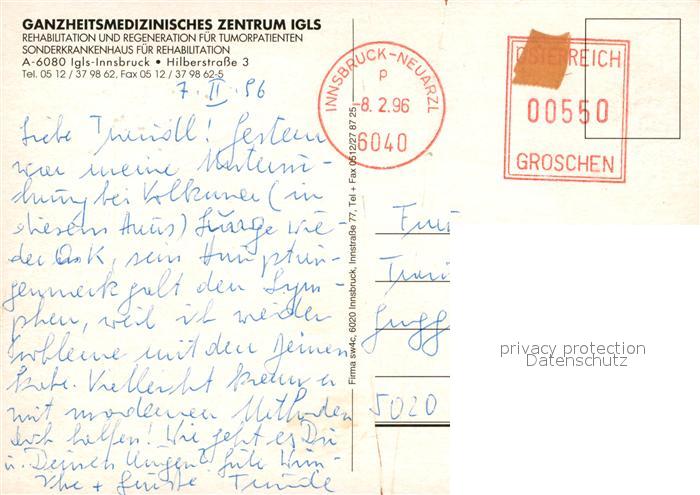 GANZHEITSMEDIZINISCHES ZENTRUM IGLS
REHABILITATION UND REGENERATION FÜR TUMORPATIENTEN
SONDERKRANKENHAUS FÜR REHABILITATION
A-6080 Igls-Innsbruck • Hilberstraße 3
Tel. 05 12 / 37 98 62, Fax 05 12 / 37 98 62-5
7. II. 96
Liebe Trudl! Gestern
war meine Untersu-
chung bei Volkmer (in
diesem Haus) Lunge wie-
der OK, sein Hauptau-
genmerk galt den Lym-
phen, weil ich wieder
Probleme mit den Beinen
habe. Vielleicht kann er
mit modernen Methoden
doch helfen! Wie geht es Dir
u. Deinen Augen? Gute Wün-
sche + Grüsse
Firma sw4c, 6020 Innsbruck, Innstraße 77, Tel + Fax 0512/27 87 25
INNSBRUCK-NEUARZL
P
-8.2.96
6040
ÖSTERREICH
00550
GROSCHEN
5020
privacy protection
Datenschutz